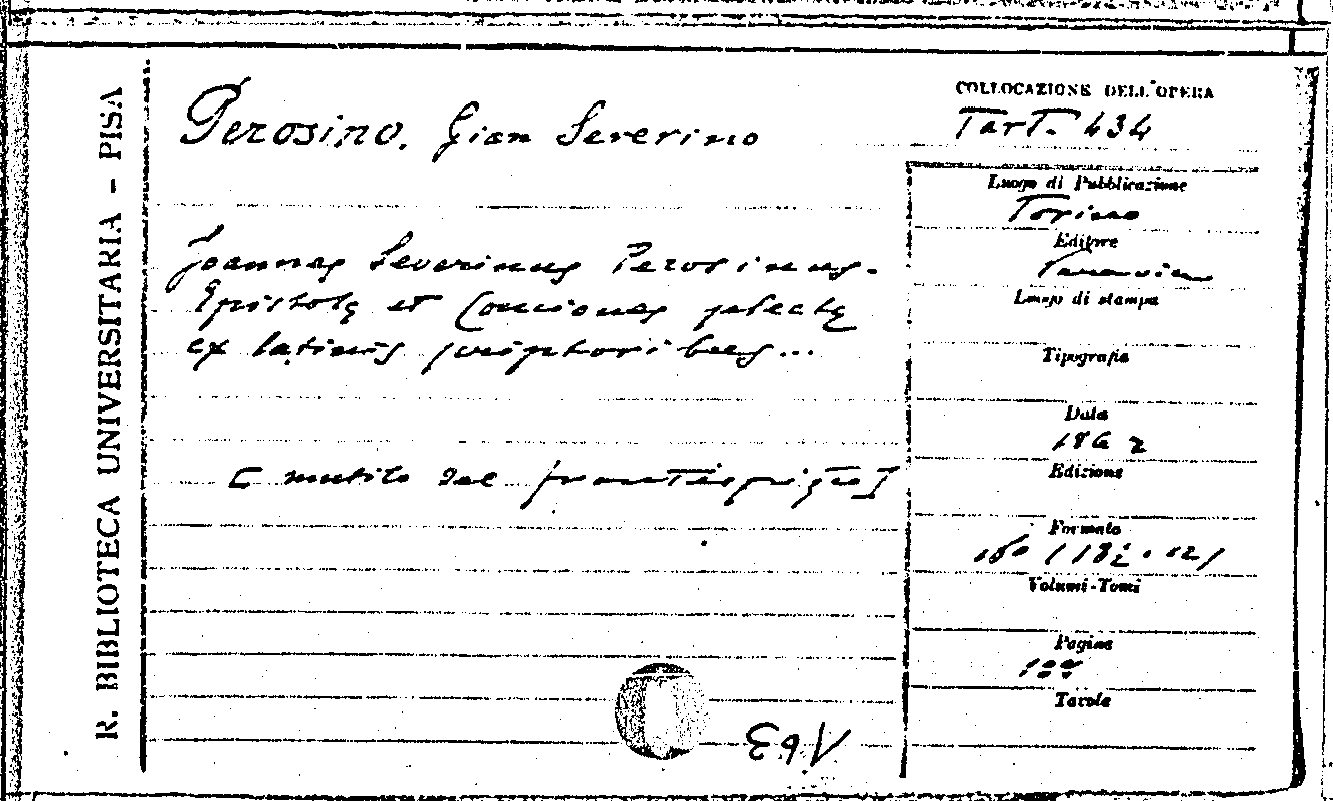 R. BIBLIOTECA UNIVERSITARIA - PISA
Perosino, Gian Severino
COLLOCAZIONE DELL'OPERA
Tart. 434
Joannes Severinus Perosinus.
Epistolę et Conciones selectę
ex latinis scriptoribus...
[mutilo del frontespizio]
Luogo di Pubblicazione
Torino
Editore
Luogo di stampa
Tipografia
Data
1862
Edizione
Formato
Volumi-Tomi
Pagine
Tavole